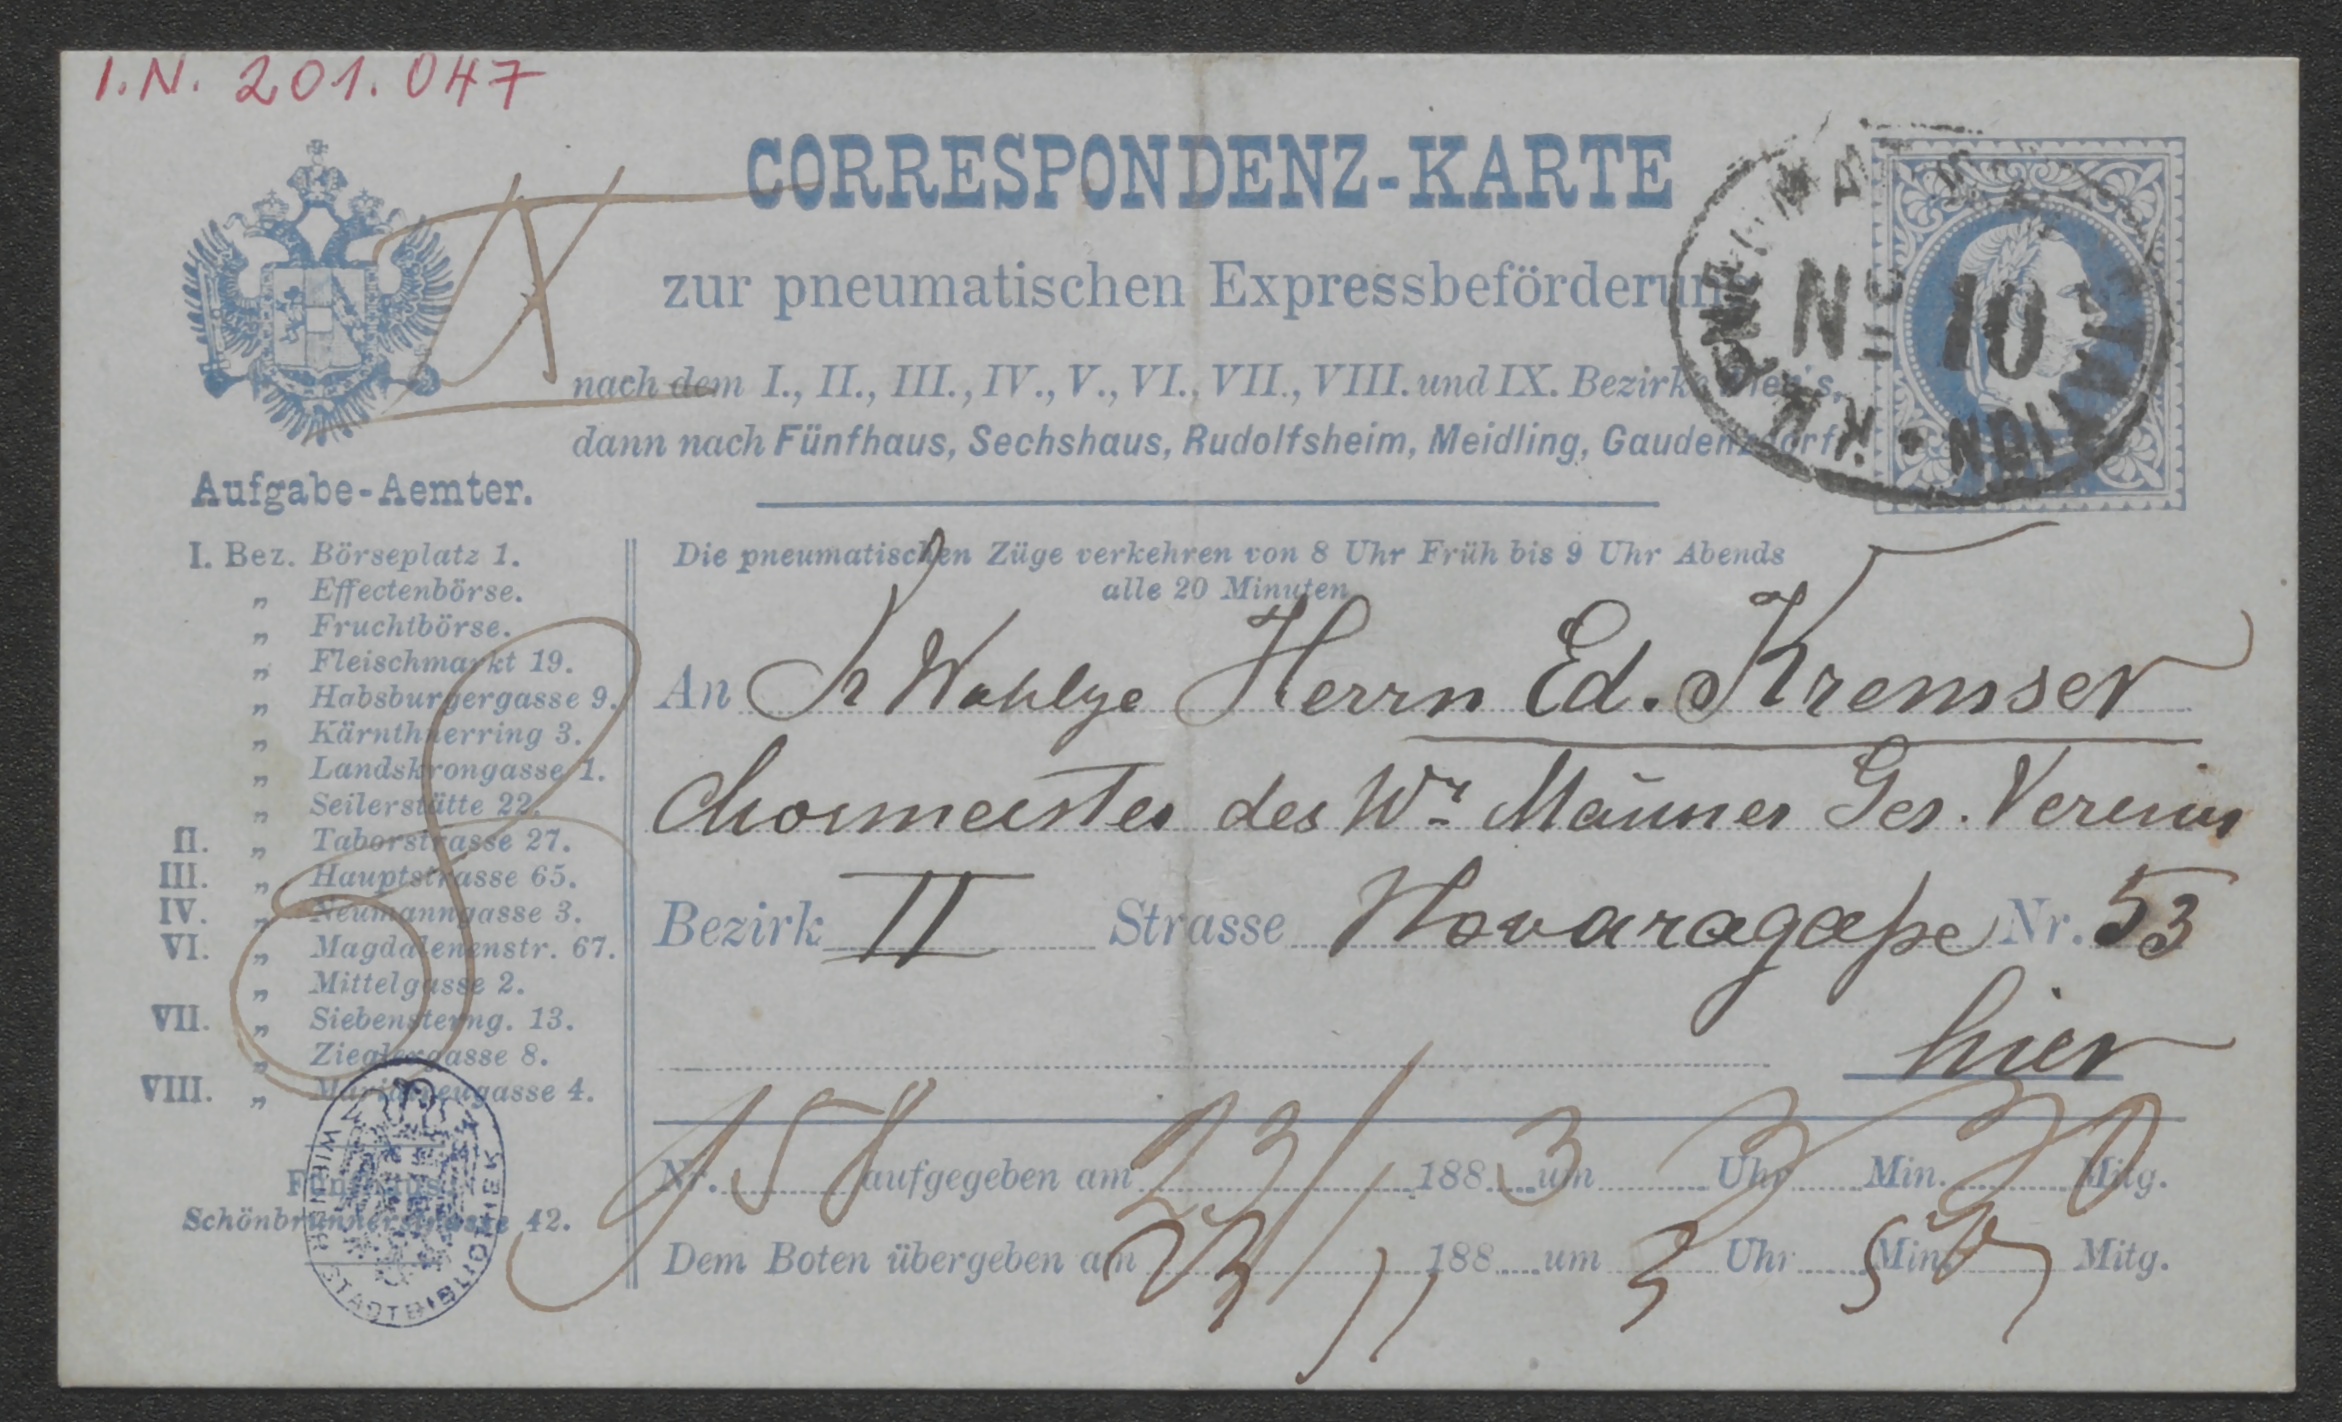 I.N. 201.047
CORRESPONDENZ-KARTE
zur pneumatischen Expressbeförderung
nach dem I., II., III., IV., V., VI., VII., VIII. und IX. Bezirke Wien's,
dann nach Fünfhaus, Sechshaus, Rudolfsheim, Meidling, Gaudenzdorf.
No 10
Aufgabe-Aemter.
I. Bez. Börseplatz 1.
„ Effectenbörse.
„ Fruchtbörse.
„ Fleischmarkt 19.
„ Habsburgergasse 9.
„ Kärnthnerring 3.
„ Landskrongasse 1.
„ Seilerstätte 22.
II. „ Taborstrasse 27.
III. „ Hauptstrasse 65.
IV. „ Neumanngasse 3.
VI. „ Magdalenenstr. 67.
„ Mittelgasse 2.
VII. „ Siebensterng. 13.
„ Zieglergasse 8.
VIII. „ Maria Treugasse 4.
Fünfhaus
Schönbrunnerstrasse 42.
Die pneumatischen Züge verkehren von 8 Uhr Früh bis 9 Uhr Abends
alle 20 Minuten
An Sr Wohlge Herrn Ed. Kremser
Chormeister des Wr Männer Ges. Vereins
Bezirk II Strasse Novaragaße Nr. 53
hier
Nr. 158 aufgegeben am 23/ 1883 um 3 Uhr Min. 30 Mitg.
Dem Boten übergeben am 23/11 188 um 3 Uhr Min. Mitg.
WIENER STADTBIBLIOTHEK